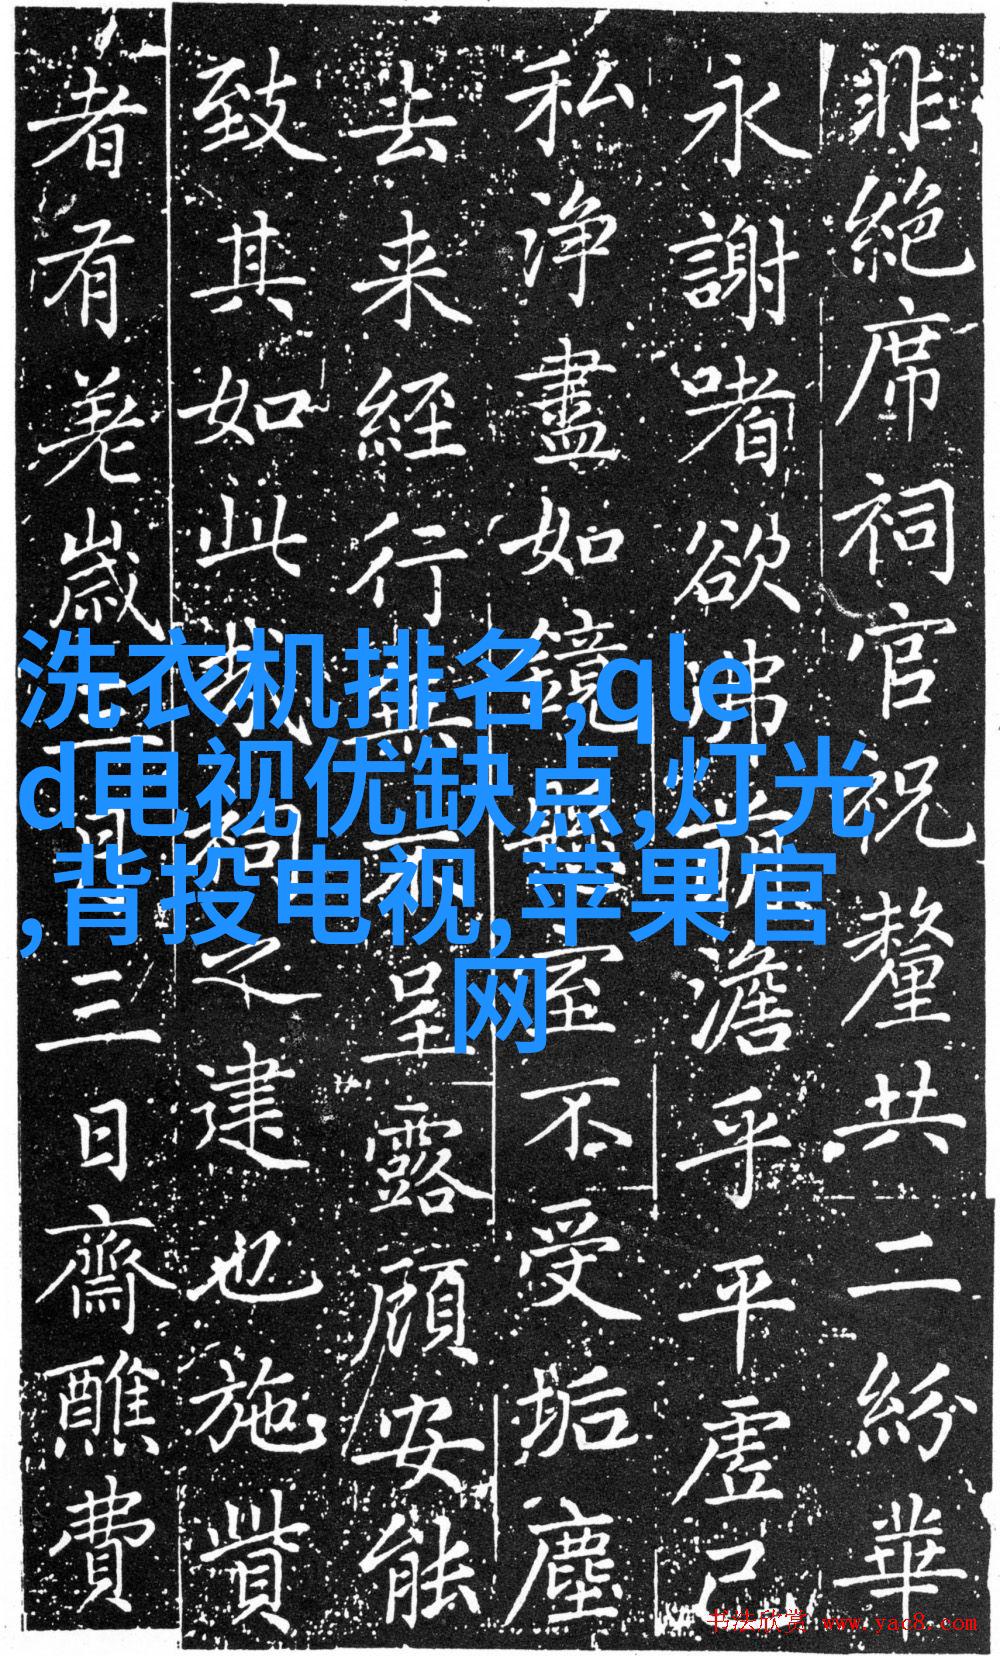 非絶席祠官祝釐共二紛華
永謝嗜欲弗澹乎平虛己
私浄盡如鏡室不受垢塵
去来経行無不呈露顧安能
致其如此哉祠之建也施貲
者有歲正月三日齋醮費
洗衣机排名,qle
d电视优缺点,灯光
,背投电视,苹果官
网
书法欣赏 www.yac8.com